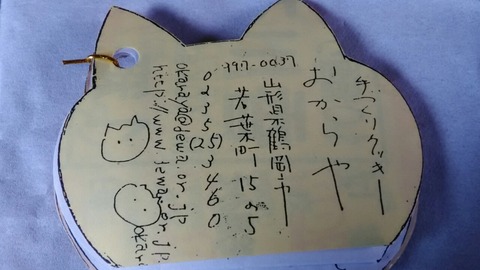 手づくりクッキー
おからや
997-0037
山形県鶴岡市
若葉町 15の5
0235(25)3460
okaraya@dewa.or.jp
http://www.dewa.or.jp